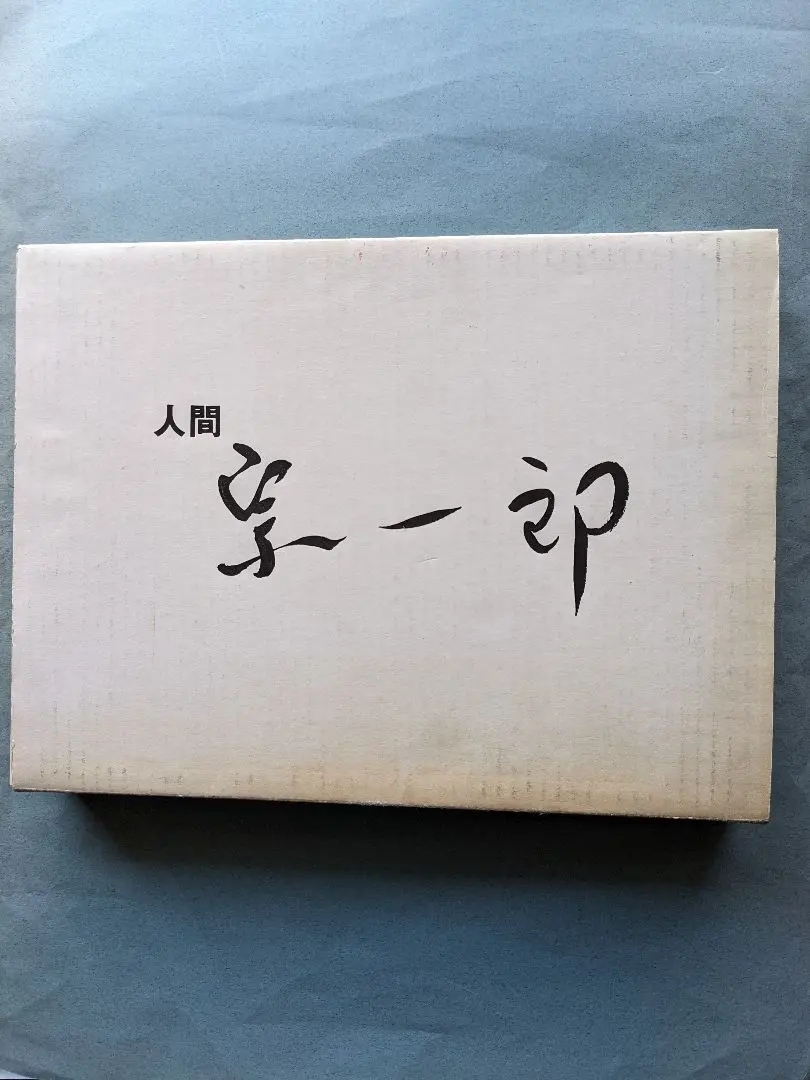 人間
宗一郎